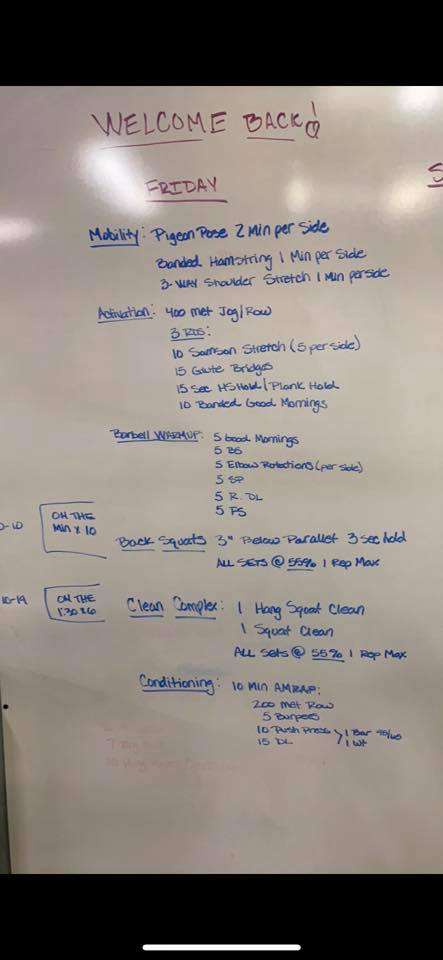 WELCOME BACK!
S
FRIDAY
Mobility: Pigeon Pose 2 Min per Side
Banded Hamstring 1 Min per Side
3-WAY Shoulder Stretch 1 Min per side
Activation: 400 met Jog/Row
3 RDS:
10 Samson Stretch (5 per side)
15 Glute Bridges
15 Sec HS Hold/Plank Hold
10 Banded Good Mornings
Barbell WARMUP: 5 Good Mornings
5 BS
5 Elbow Rotations (per side)
5 SP
5 R. DL
5 FS
0-10
ON THE
MIN x 10
Back Squats 3" Below Parallel 3 sec hold
ALL SETS @ 55% 1 Rep Max
10-19
ON THE
1:30 x 6
Clean Complex: 1 Hang Squat Clean
1 Squat Clean
ALL Sets @ 55% 1 Rep Max
Conditioning: 10 Min AMRAP:
200 met Row
5 Burpees
10 Push Press > 1 Bar 95/65
15 DL 1 Wt